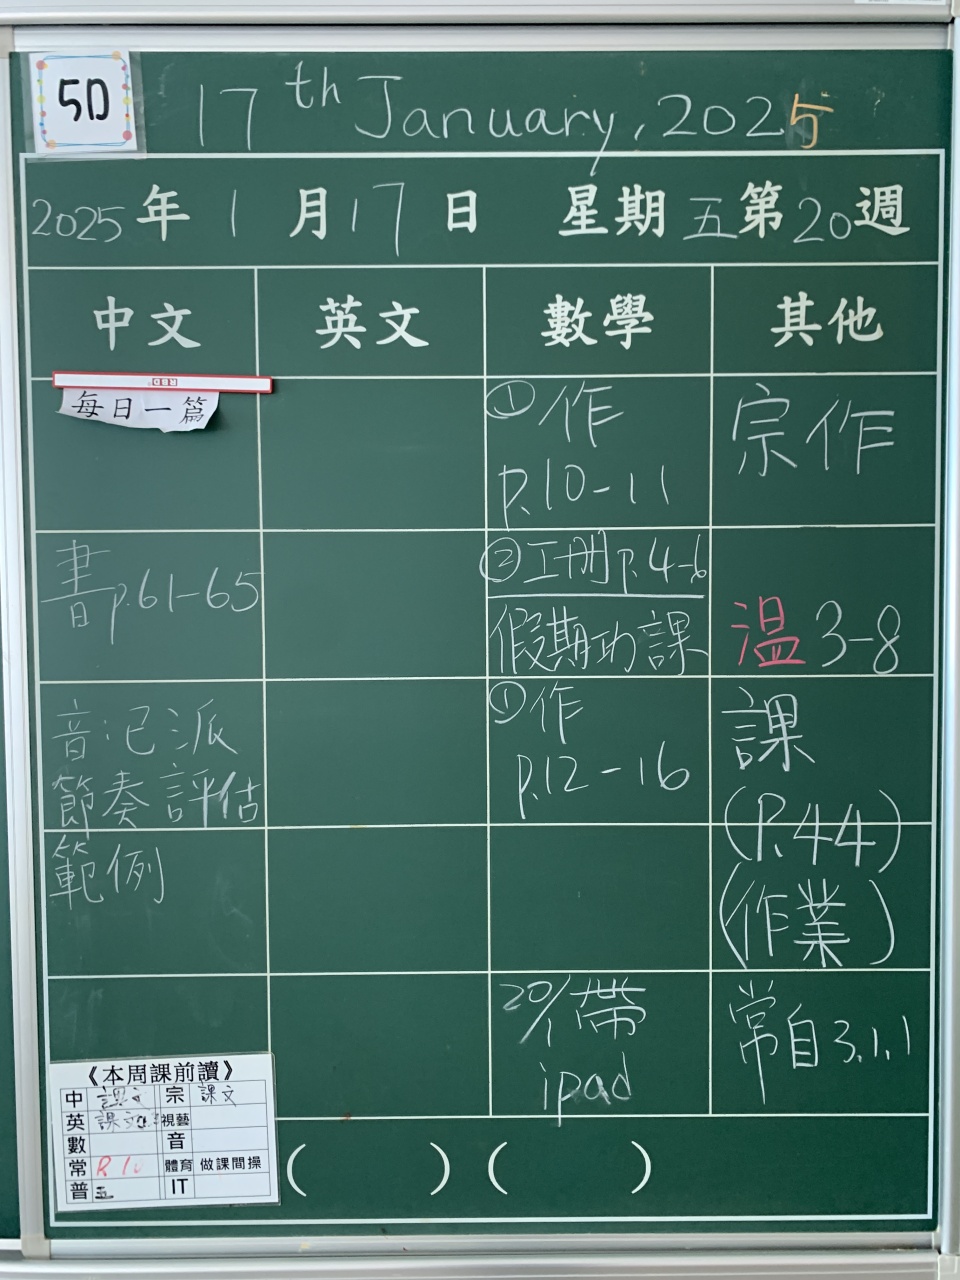 5D
17th January, 2025
2025年1月17日 星期五第20週
中文 英文 數學 其他
RBD
每日一篇
①作
p.10-11
宗作
書p.61-65
②工册p.4-6
假期功課
溫3-8
音:已派
節奏評估
範例
①作
p.12-16
課
(P.44)
(作業)
20/1帶
ipad
常自3.1.1
《本周課前讀》
中 課文 宗 課文
英 視藝
數 音
常 體育 做課間操
普 IT
( ) ( )